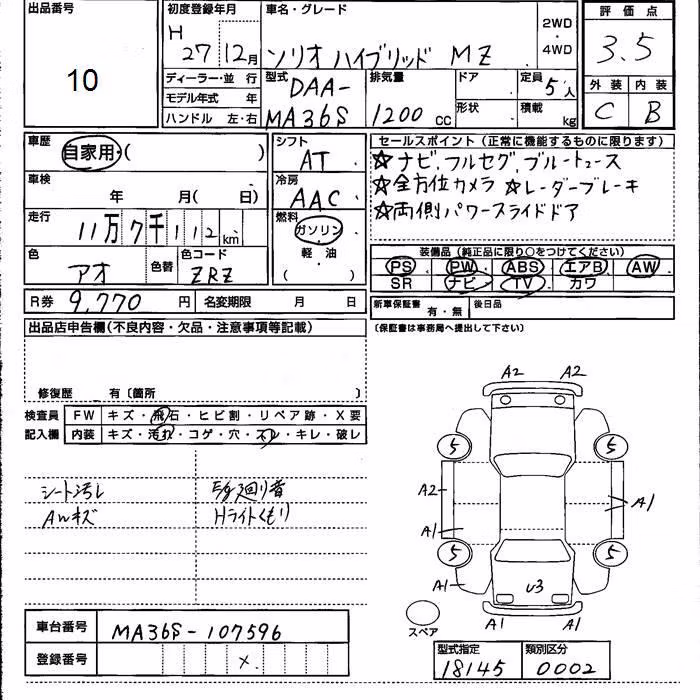 出品番号
10
初度登録年月
H 27 12月
車名・グレード
ソリオ ハイブリッド MZ
2WD
4WD
評価点
3.5
外装 内装
C B
ディーラー・並 行
モデル年式 年
ハンドル 左・右
型式 DAA-
MA36S
排気量
1200 cc
ドア
形状
定員 5人
積載 kg
車歴
自家用・( )
車検
年 月( 日)
走行
11万7千112km
色
アオ
色替
色コード
ZRZ
シフト
AT
冷房
AAC
燃料
ガソリン
軽・油
( )
セールスポイント(正常に機能するものに限ります)
☆ナビ、フルセグ、ブルートゥース
☆全方位カメラ ☆レーダーブレーキ
☆両側パワースライドドア
装備品(純正品に限り○をつけてください)
PS PW ABS エアB AW
SR ナビ TV カワ
R券 9,770 円
名変期限 月 日
新車保証書 有・無
後日品
(保証書は事務局へ提出して下さい)
出品店申告欄(不良内容・欠品・注意事項等記載)
修復歴 有〔箇所 〕
検査員
記入欄
FW キズ・飛石・ヒビ割・リペア跡・X要
内装 キズ・汚れ・コゲ・穴・スレ・キレ・破レ
シート汚レ
AWキズ
E/g廻り音
Hライトくもり
A2 A2
5 5
A2
A1
A1
5 5
A1
U3
A1 A1
スペア
車台番号 MA36S-107596
登録番号 ×.
型式指定
18145
類別区分
0002